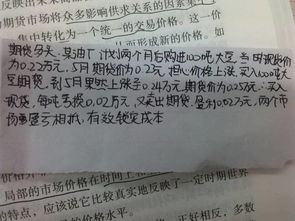 反映出未来商
期货市场将众多影响供求关系的因素集
中转化为一个统一的交易价格。这一价
而形成新的价格。如
期货多头：某油厂计划两个月后购进100吨大豆，当时现货价
为0.22万元，5月期货价为0.23元 担心价格上涨，买入100吨大
豆期货，到5月果然上涨至0.24万元，期货价为0.25元：买入
现货，每吨亏损0.02万元，又卖出期货，盈利0.02万元，两个市
场盈亏相抵，有效锁定成本
局部的市场价格在时间上和
的特点，应该说它比较真实地反映了一定时期世界
的价格水平。
正好相反，多数